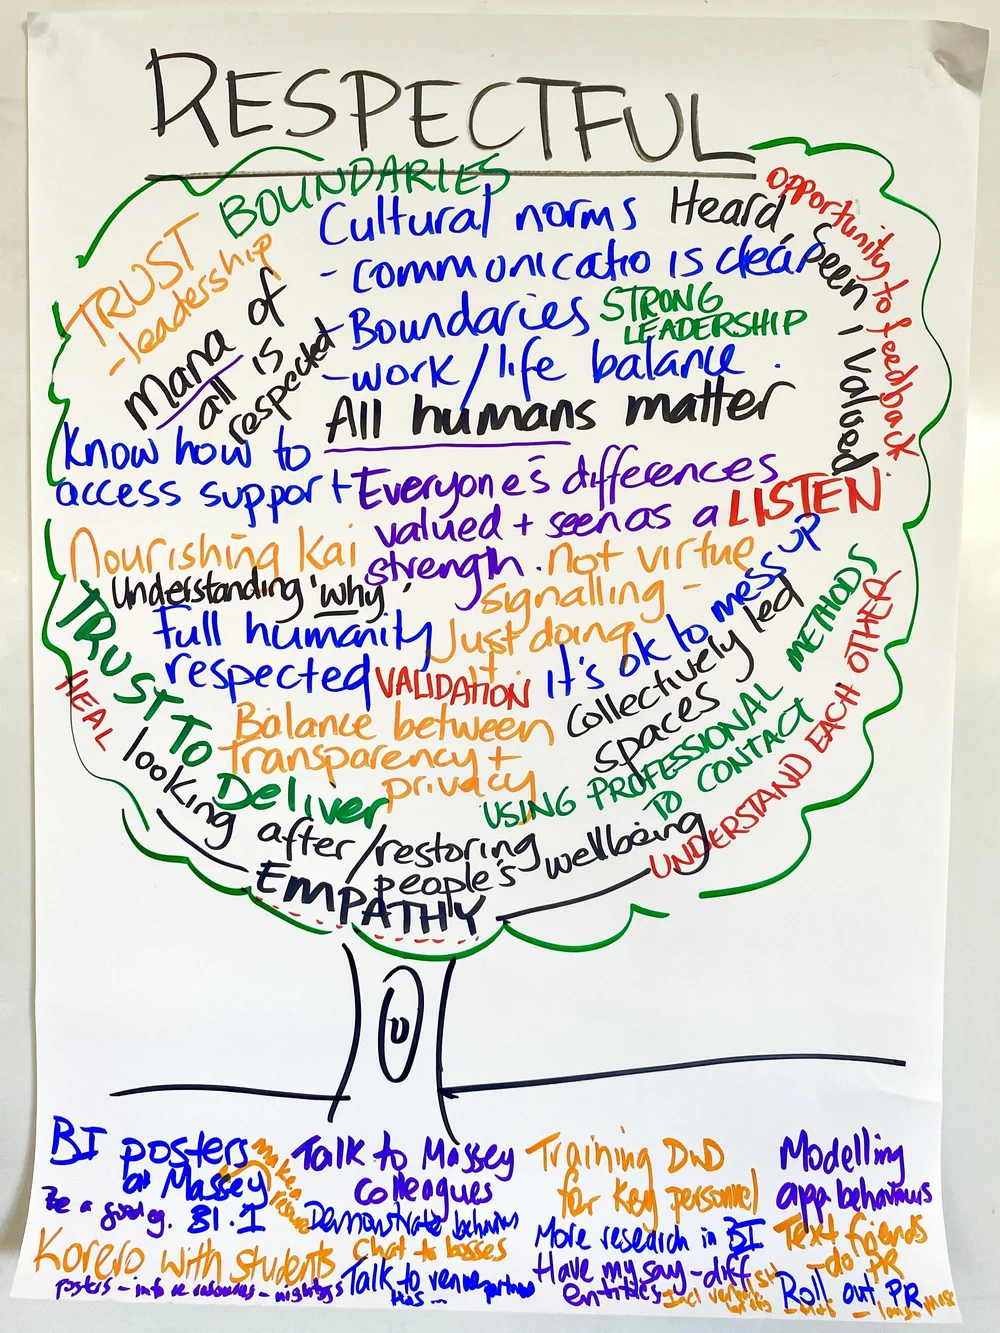 RESPECTFUL
BOUNDARIES
TRUST
- leadership
Mana of
all is
respected
Cultural norms
- communicatio is clear
- Boundaries
- work/life balance.
STRONG
LEADERSHIP
Heard, Seen, Valued
opportunity to feedback
All humans matter
Know how to
access support
Everyone's differences
valued + seen as a
strength.
LISTEN
Nourishing Kai
Understanding 'why'
not virtue
signalling -
Just doing
it.
Full humanity
respected
VALIDATION
It's ok to mess up
TRUST TO
Deliver
HEAL
Balance between
transparency +
privacy
Collectively led
spaces
USING PROFESSIONAL METHODS
TO CONTACT
UNDERSTAND EACH OTHER
looking after/restoring
people's wellbeing
EMPATHY
BI posters
at Massey
Be a good eg. BI.I
make a
Talk to Massey
Colleagues
Demonstrate behavios
Training DwD
for key personnel
Modelling
app behaviours
Korero with students
Chat to bosses
More research in BI
Text friends
- do PR
posters -
Talk to venue
Have my say - diff
entities
Roll out PR